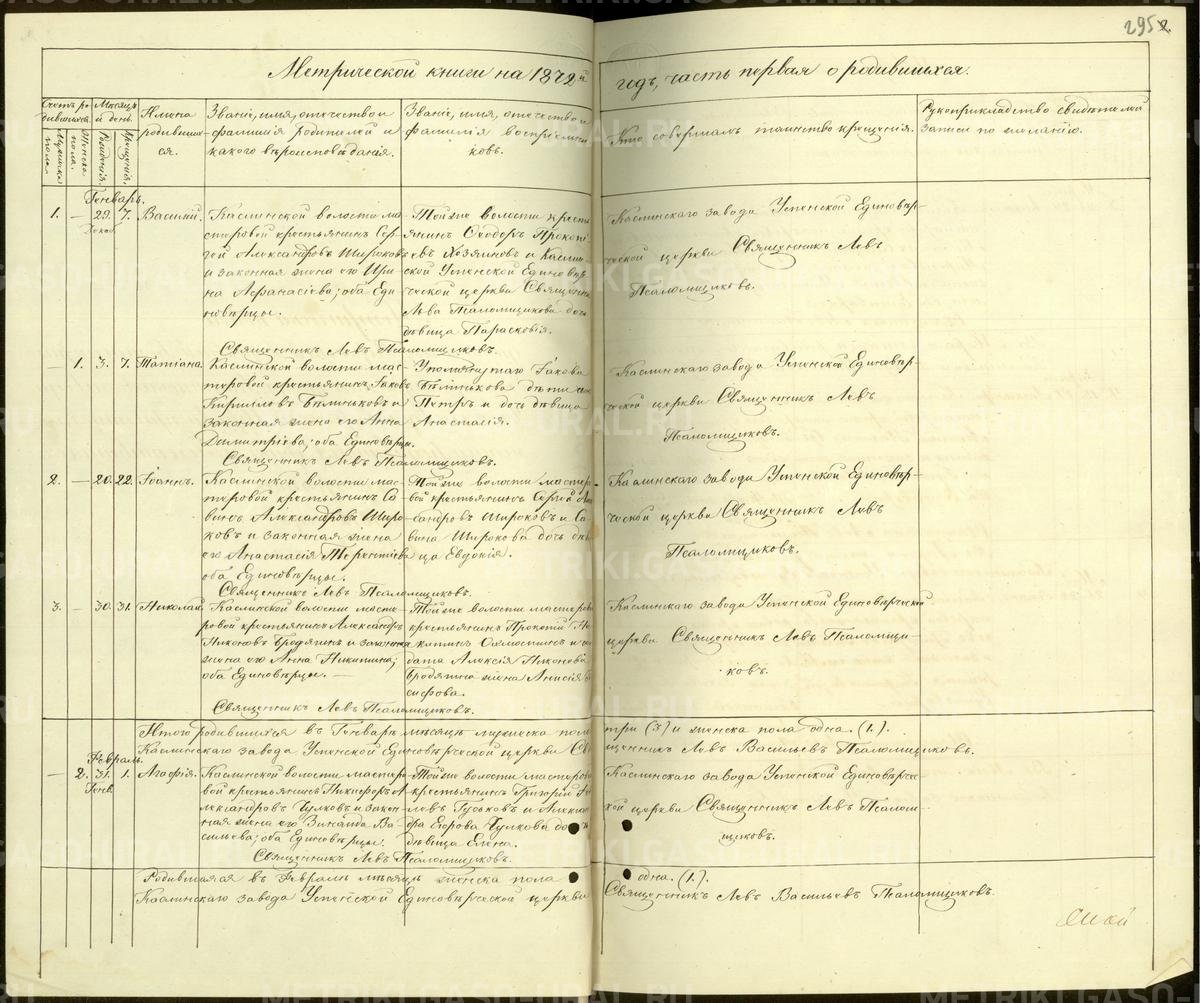 295
Метрической книги на 1872й годъ, часть первая о родившихся.
Счетъ родившихся.
Мужеска пола.
Женска пола.
Месяцъ и день.
Рожденія.
Крещенія.
Имена
родивших-
ся.
Званіе, имя, отчество и
фамилія родителей и
какого вѣроисповѣданія.
Званіе, имя, отчество и
фамилія воспріемни-
ковъ.
Кто совершалъ таинство крещенія.
Рукоприкладство свидѣтелей
записи по желанію.
Генварь.
1. — 29. 7. Василій.
Декаб
Каслинской волости ма-
стеровой крестьянинъ Сер-
гей Александровъ Широковъ
и законная жена его Ири-
на Афанасіева; оба Еди-
новѣрцы.
Тойже волости кресть
янинъ Ѳеодоръ Прокопі
евъ Хозяиновъ и Каслин-
ской Успенской Единовѣр
ческой церкви Священника
Льва Псаломщикова дочь
дѣвица Парасковія.
Священникъ Левъ Псаломщиковъ.
Каслинскаго завода Успенской Единовѣр-
ческой церкви Священникъ Левъ
Псаломщиковъ.
— 1. 3. 7. Татіана.
Каслинской волости мас-
теровой крестьянинъ Іаковъ
Кирилловъ Бѣлиньковъ и
законная жена его Анна
Димитріева; оба Единовѣрцы.
Упомянутаго Іакова
Бѣлинькова дѣти
Петръ и дочь дѣвица
Анастасія.
Священникъ Левъ Псаломщиковъ.
Каслинскаго завода Успенской Единовѣр-
ческой церкви Священникъ Левъ
Псаломщиковъ.
2. — 20. 22. Іоаннъ.
Каслинской волости мас-
теровой крестьянинъ Са-
винъ Александровъ Широ-
ковъ и законная жена
его Анастасія Терентіева
оба Единовѣрцы.
Тойже волости мастеро
вой крестьянинъ Сергей Але
ксандровъ Широковъ и Са-
вина Широкова дочь дѣви
ца Евдокія.
Священникъ Левъ Псаломщиковъ.
Каслинскаго завода Успенской Единовѣр-
ческой церкви Священникъ Левъ
Псаломщиковъ.
3. — 30. 31. Николай.
Каслинской волости масте-
ровой крестьянинъ Александръ
Никоновъ Бродягинъ и законная
жена его Анна Никитина;
оба Единовѣрцы. —
Тойже волости мастеров
крестьянинъ Прокопій Ни
китинъ Охлюстинъ и сол
дата Алексія Никонова
Бродягина жена Анисія
сифова.
Священникъ Левъ Псаломщиковъ.
Каслинскаго завода Успенской Единовѣрческой
церкви Священникъ Левъ Псаломщи-
ковъ.
Итого родившихся въ Генварѣ мѣсяцѣ мужеска пола три (3) и женска пола одна. (1.).
Каслинскаго завода Успенской Единовѣрческой церкви Священникъ Левъ Васильевъ Псаломщиковъ.
Февраль.
— 2. 31. 1. Агафія.
Генв
Каслинской волости мастеро
вой крестьянинъ Никифоръ А-
лександровъ Чулковъ и закон-
ная жена его Зинаида Ва-
сильева; оба Единовѣрцы.
Тойже волости мастеровой
крестьянинъ Григорій
левъ Гуськовъ и Алексан
дра Егорова Чулкова дочь
дѣвица Елена.
Священникъ Левъ Псаломщиковъ.
Каслинскаго завода Успенской Единовѣрчес-
кой церкви Священникъ Левъ Псалом-
щиковъ.
Родившаяся въ Февралѣ мѣсяцѣ женска пола одна. (1.).
Каслинскаго завода Успенской Единовѣрческой церкви Священникъ Левъ Васильевъ Псаломщиковъ.
METRIKI.GASO-URAL.RU